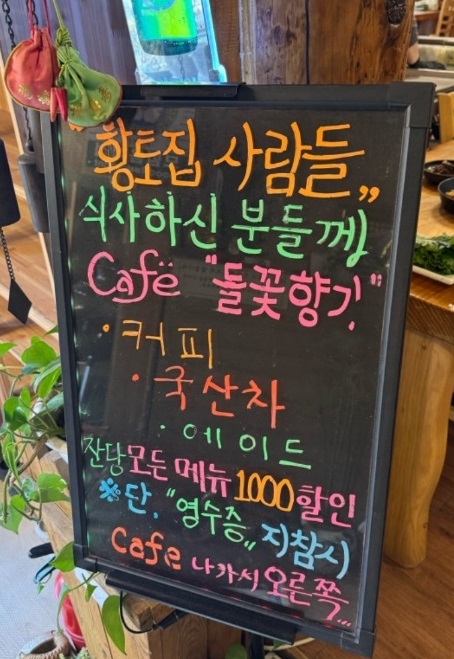 "황토집 사람들"
식사하신 분들께
Cafe "돌꽃향기"
· 커피
· 국산차
· 에이드
잔당 모든 메뉴 1000 할인
※단. "영수증" 지참시
Cafe 나가서 오른쪽...